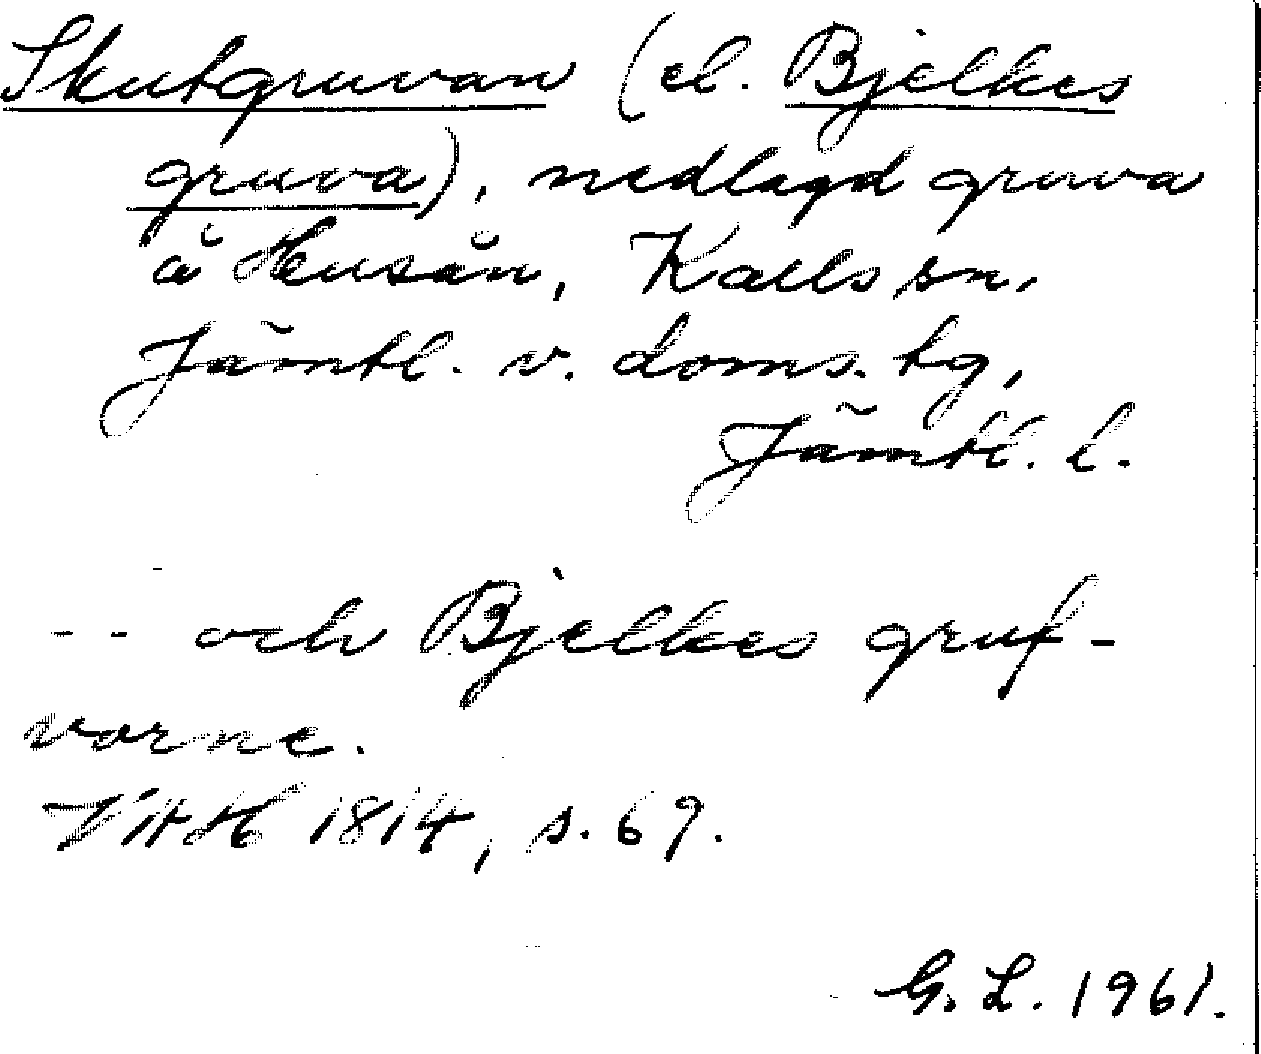 Skutgruvan (el. Bjelkes
gruva), nedlagd gruva
å Huså n, Kalls sn,
Jämtl. v. doms. tg,
Jämtl. l.
-- och Bjelkes gruf-
vorne.
VittH 1814, s. 69.
G. L. 1961.